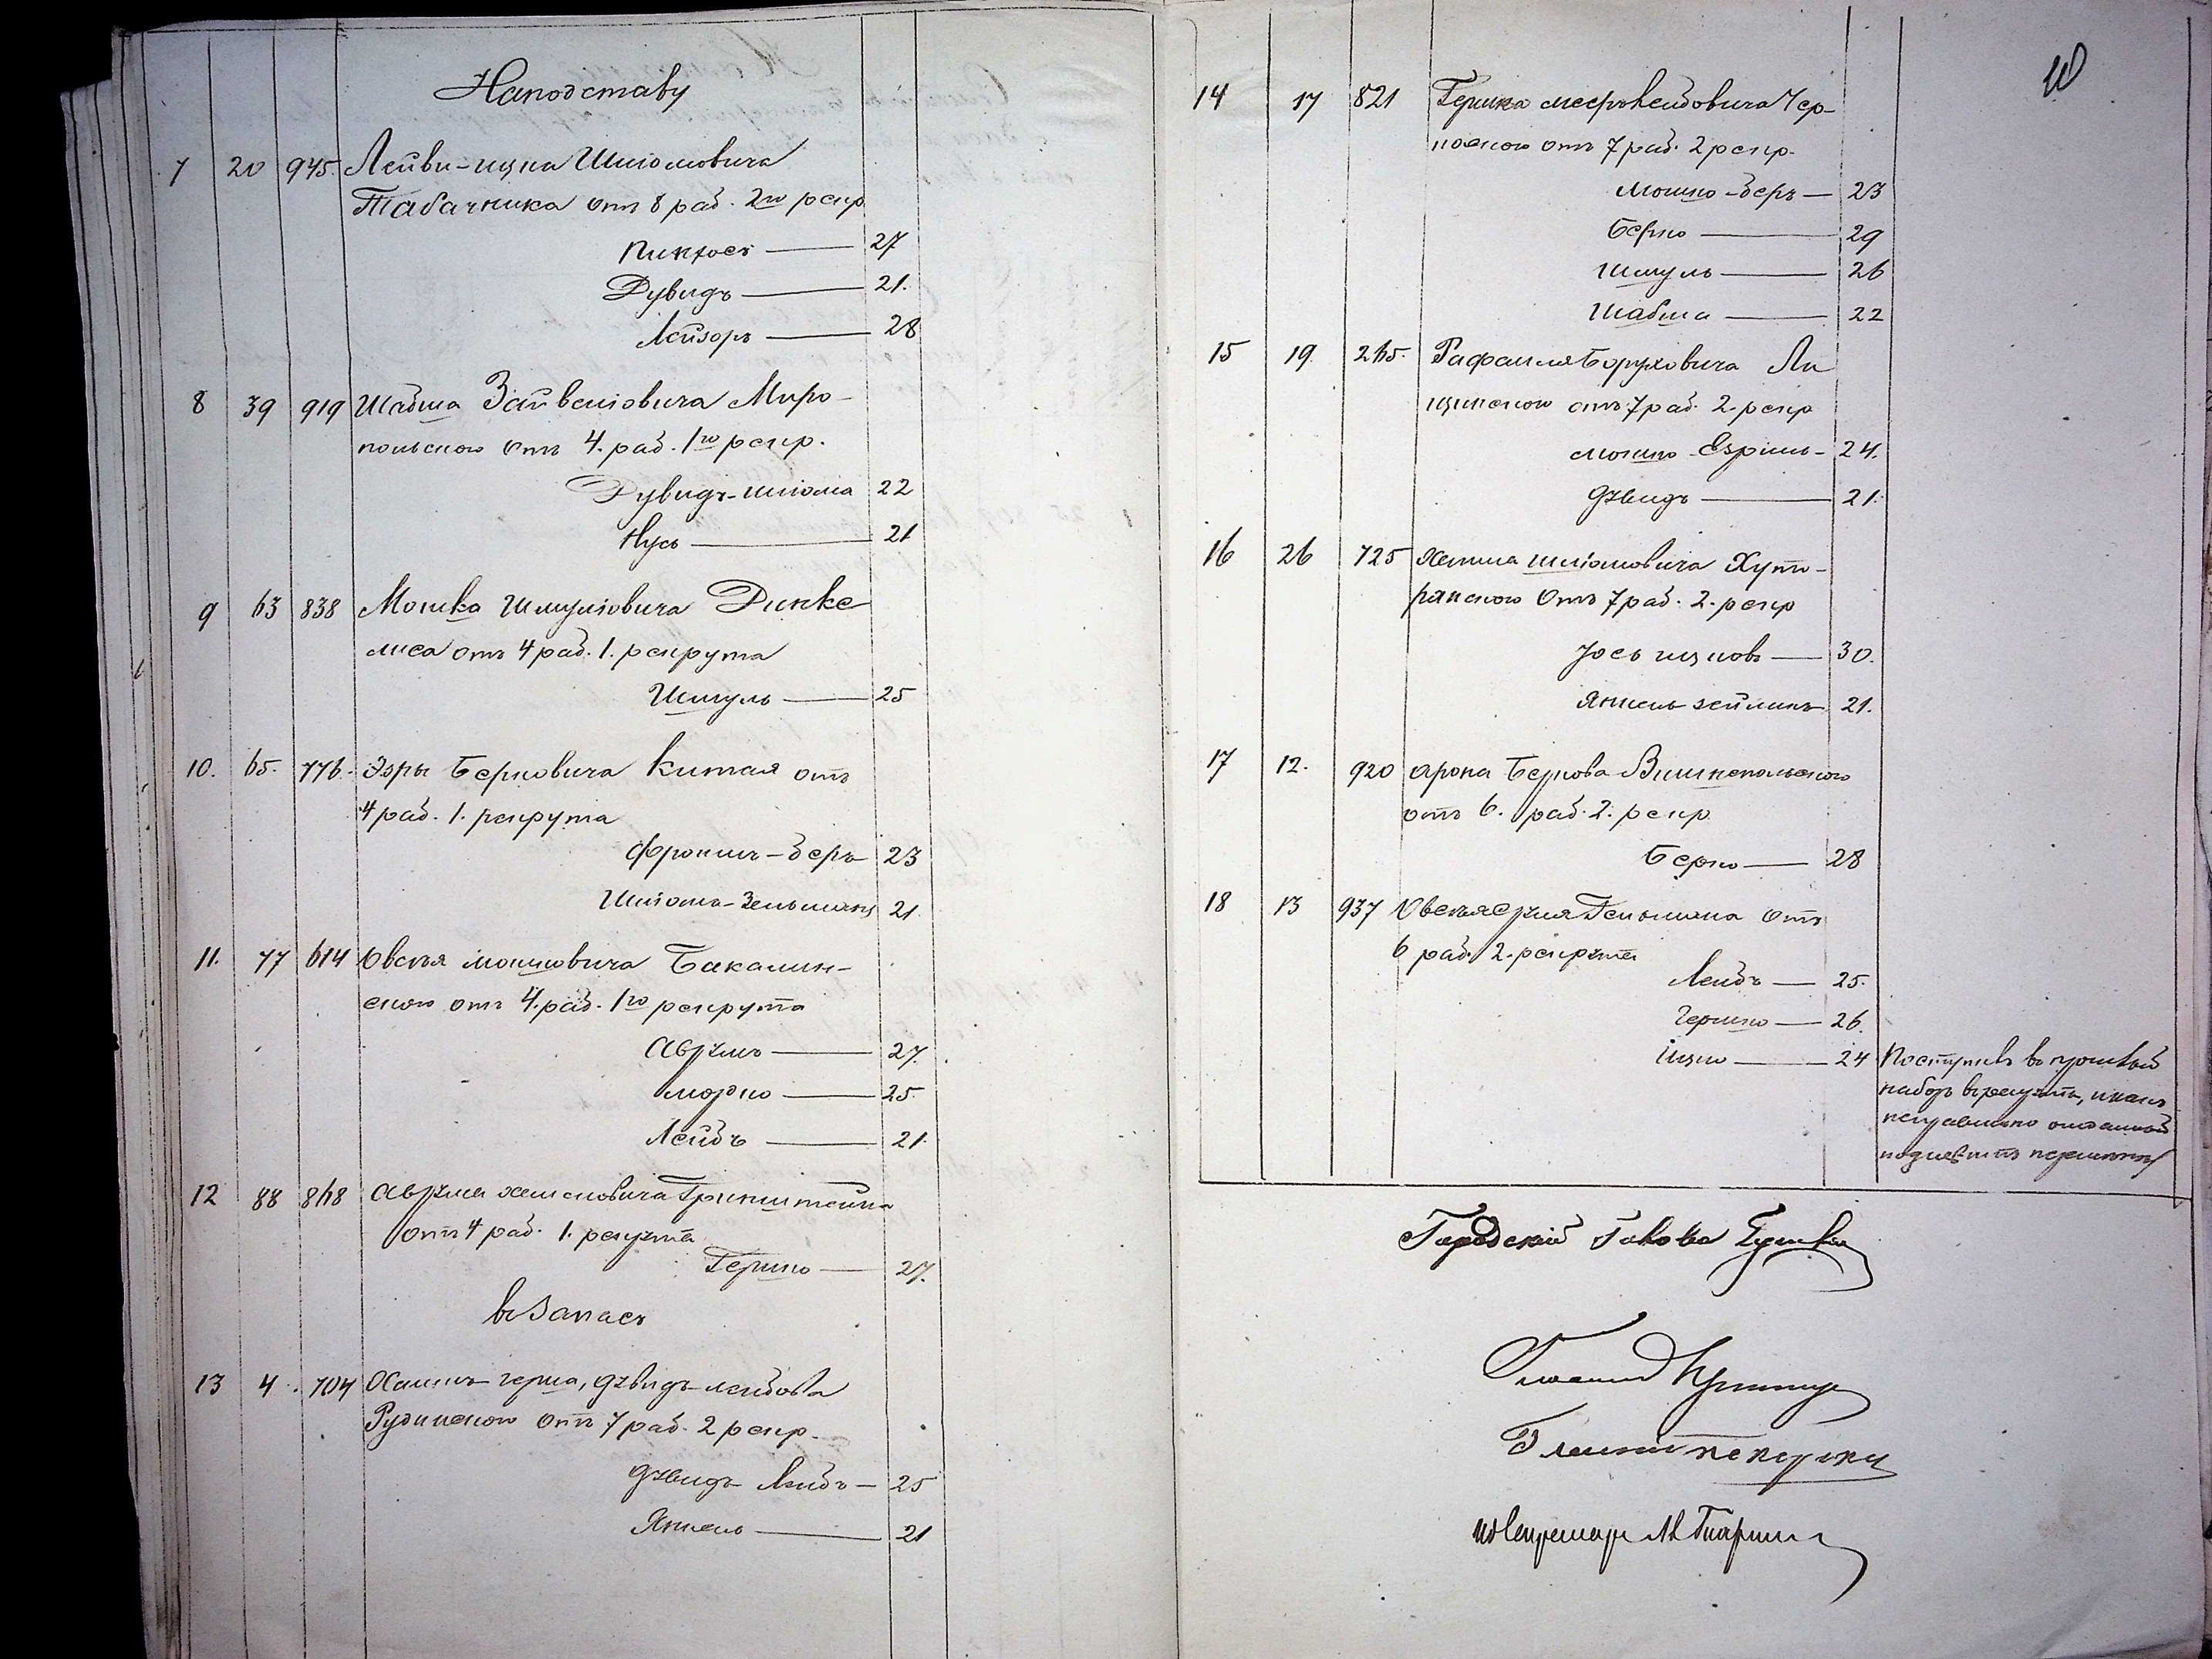 Наподставу
7 20 945. Лейви-ицка Шліомовича
Табачника отъ 8 раб. 2го рекр
Пинхосъ — 27
Дувидъ — 21.
Лейзоръ — 28
8 39 919 Шабша Зайвеліовича Миро-
польского отъ 4. раб. 1го рекр.
Дувидъ-шліома 22
Нусь — 21
9 63 838 Мошка Шмуліовича Динке
лиса отъ 4 раб. 1. рекрута
Шмуль — 25
10. 65. 776. Эзры Берковича Китая отъ
4 раб. 1. рекрута
Фроимъ-беръ 23
Шліома-Зельманъ 21.
11. 77 614 Овсѣя Мошковича Бакалин-
ского отъ 4. раб. 1го рекрута
Аврумъ — 27.
Мордко — 25.
Лейбъ — 21.
12 88 868 Аврума Хаимовича Гринштейна
отъ 4 раб. 1. рекрута
Гершко — 27.
въ Запасъ
13 4. 704 Хаимъ герша, дувидъ лейбова
Рудинского отъ 7 раб. 2 рекр.
Дувидъ Лейбъ — 25
Янкель — 21
14 17 821 Гершка меерълейбовича Чер-
ного отъ 7 раб. 2 рекр.
Мошко-беръ — 23
Берко — 29
Шмуль — 26
Шабша — 22
15 19. 265. Рафаиля Боруховича Ли
щинского отъ 7 раб. 2. рекр
Мошко Ефримъ — 24.
Дувидъ — 21.
16 26 725 Хаима Шліомовича Хуто-
рянского отъ 7 раб. 2. рекр
Іось ицковъ — 30.
Янкель зейликъ 21.
17 12. 920 Арона Беркова Вишнепольского
отъ 6. раб. 2. рекр.
Берко — 28
18 13 937 Овсѣя сруля Гельмана отъ
6 раб. 2. рекрута
Лейбъ — 25.
Гершко — 26.
Ицко — 24 Поступилъ въ прошлый
наборъ въ рекрута, и какъ
неправильно отданный
подлѣжитъ перемѣнѣ
Городской Голова
Гласный
Гласный